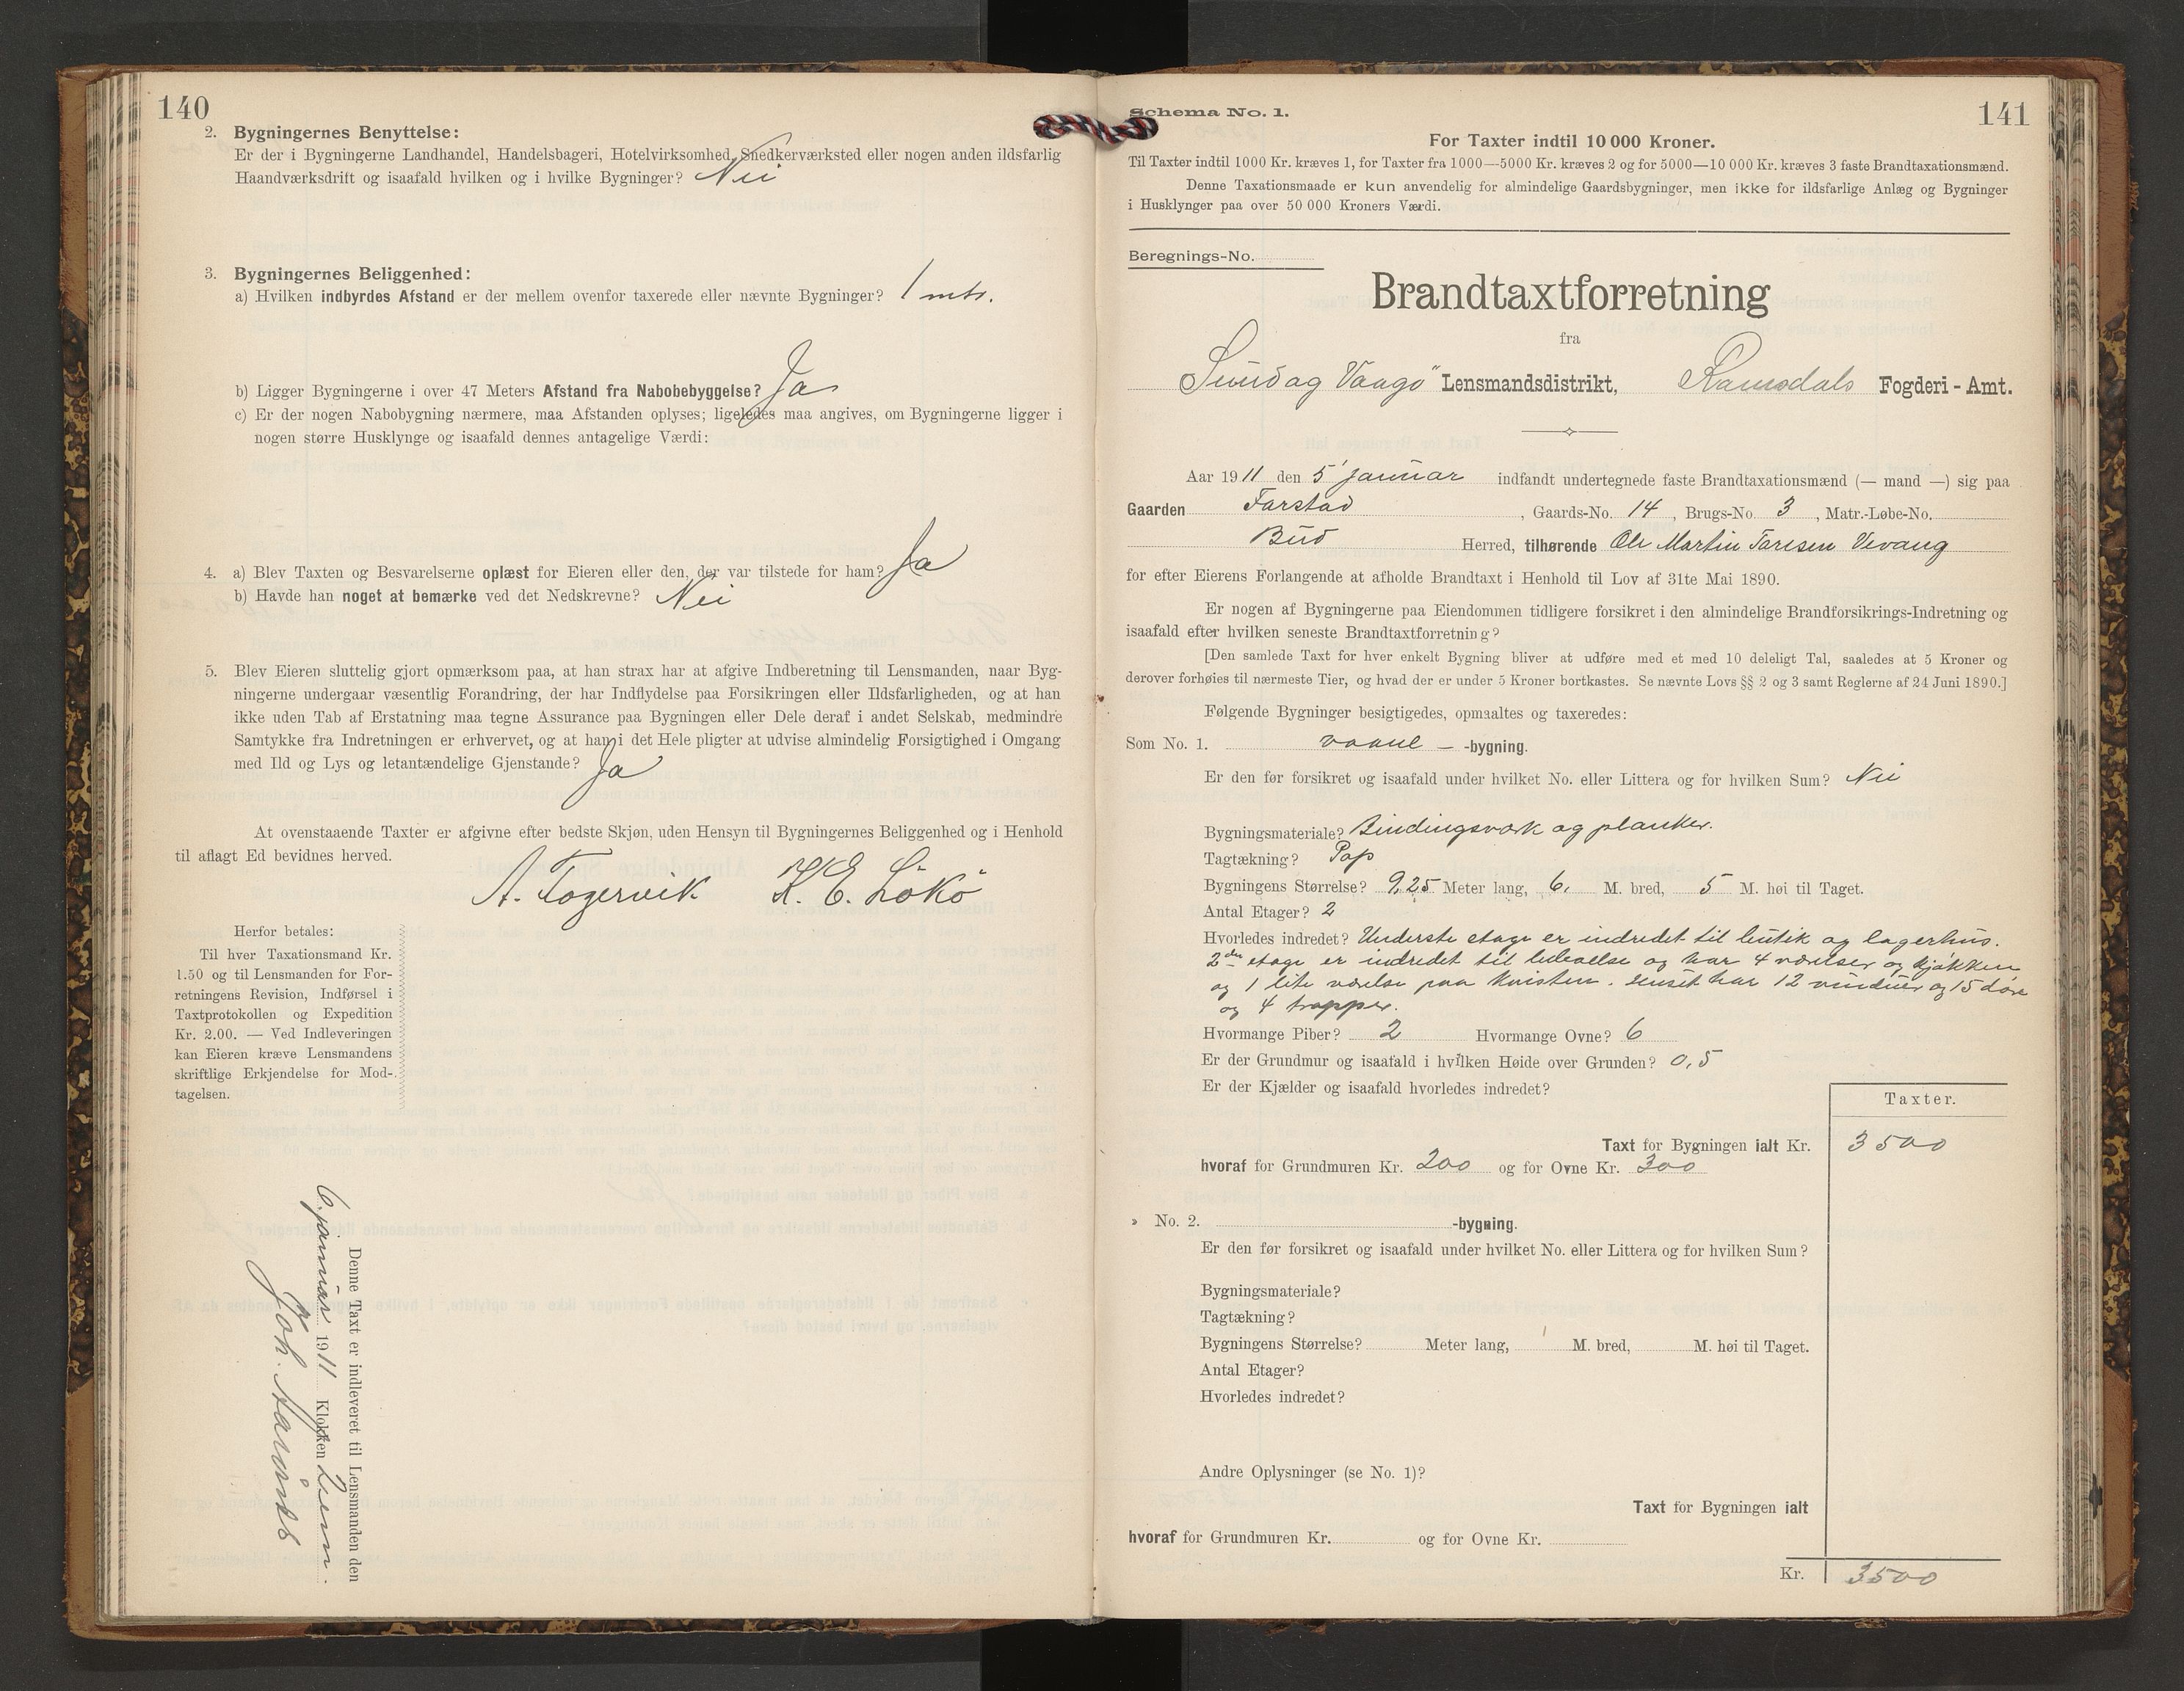 140
2. Bygningernes Benyttelse:
Er der i Bygningerne Landhandel, Handelsbageri, Hotelvirksomhed, Snedkerværksted eller nogen anden ildsfarlig
Haandværksdrift og isaafald hvilken og i hvilke Bygninger? Nei
3. Bygningernes Beliggenhed:
a) Hvilken indbyrdes Afstand er der mellem ovenfor taxerede eller nævnte Bygninger? 1 mtr.
b) Ligger Bygningerne i over 47 Meters Afstand fra Nabobebyggelse? Ja
c) Er der nogen Nabobygning nærmere, maa Afstanden oplyses; ligeledes maa angives, om Bygningerne ligger i
nogen større Husklynge og isaafald dennes antagelige Værdi:
4. a) Blev Taxten og Besvarelserne oplæst for Eieren eller den, der var tilstede for ham? Ja
b) Havde han noget at bemærke ved det Nedskrevne? Nei
5. Blev Eieren sluttelig gjort opmærksom paa, at han strax har at afgive Indberetning til Lensmanden, naar Byg-
ningerne undergaar væsentlig Forandring, der har Indflydelse paa Forsikringen eller Ildsfarligheden, og at han
ikke uden Tab af Erstatning maa tegne Assurance paa Bygningen eller Dele deraf i andet Selskab, medmindre
Samtykke fra Indretningen er erhvervet, og at han i det Hele pligter at udvise almindelig Forsigtighed i Omgang
med Ild og Lys og letantændelige Gjenstande? Ja
At ovenstaaende Taxter er afgivne efter bedste Skjøn, uden Hensyn til Bygningernes Beliggenhed og i Henhold
til aflagt Ed bevidnes herved.
A. Togervik K. E. Lökö
Herfor betales:
Til hver Taxationsmand Kr.
1.50 og til Lensmanden for For-
retningens Revision, Indførsel i
Taxtprotokollen og Expedition
Kr. 2.00. — Ved Indleveringen
kan Eieren kræve Lensmandens
skriftlige Erkjendelse for Mod-
tagelsen.
Denne Taxt er indleveret til Lensmanden den
6. januar 1911 Klokken
Joh.
Schema No. 1.
141
For Taxter indtil 10 000 Kroner.
Til Taxter indtil 1000 Kr. kræves 1, for Taxter fra 1000—5000 Kr. kræves 2 og for 5000—10 000 Kr. kræves 3 faste Brandtaxationsmænd.
Denne Taxationsmaade er kun anvendelig for almindelige Gaardsbygninger, men ikke for ildsfarlige Anlæg og Bygninger
i Husklynger paa over 50 000 Kroners Værdi.
Beregnings-No.
Brandtaxtforretning
fra
Sund og Vaagö Lensmandsdistrikt, Romsdals Fogderi - Amt.
Aar 1911 den 5' januar indfandt undertegnede faste Brandtaxationsmænd (— mand —) sig paa
Gaarden Farstad, Gaards-No. 14, Brugs-No. 3, Matr.-Løbe-No.
Bud Herred, tilhørende Ole Martin Toresen Vevang
for efter Eierens Forlangende at afholde Brandtaxt i Henhold til Lov af 31te Mai 1890.
Er nogen af Bygningerne paa Eiendommen tidligere forsikret i den almindelige Brandforsikrings-Indretning og
isaafald efter hvilken seneste Brandtaxtforretning?
[Den samlede Taxt for hver enkelt Bygning bliver at udføre med et med 10 deleligt Tal, saaledes at 5 Kroner og
derover forhøies til nærmeste Tier, og hvad der er under 5 Kroner bortkastes. Se nævnte Lovs §§ 2 og 3 samt Reglerne af 24 Juni 1890.]
Følgende Bygninger besigtigedes, opmaaltes og taxeredes:
Som No. 1. vaane — -bygning.
Er den før forsikret og isaafald under hvilket No. eller Littera og for hvilken Sum? Nei
Bygningsmateriale? Bindingsværk og planker.
Tagtækning? Pap
Bygningens Størrelse? 9,25 Meter lang, 6, M. bred, 5 M. høi til Taget.
Antal Etager? 2
Hvorledes indredet? Underste etage er indredet til butik og lagerhus.
2den etage er indredet til beboelse og har 4 værelser og kjøkken
og 1 lite værelse paa kvisten. Huset har 12 vinduer og 15 døre
og 4 trapper.
Hvormange Piber? 2 Hvormange Ovne? 6
Er der Grundmur og isaafald i hvilken Høide over Grunden? 0,5
Er der Kjælder og isaafald hvorledes indredet?
Taxter.
Taxt for Bygningen ialt Kr. 3500
hvoraf for Grundmuren Kr. 200 og for Ovne Kr. 300
» No. 2. -bygning.
Er den før forsikret og isaafald under hvilket No. eller Littera og for hvilken Sum?
Bygningsmateriale?
Tagtækning?
Bygningens Størrelse? Meter lang, M. bred, M. høi til Taget.
Antal Etager?
Hvorledes indredet?
Andre Oplysninger (se No. 1)?
Taxt for Bygningen ialt
hvoraf for Grundmuren Kr. og for Ovne Kr.
Kr. 3500